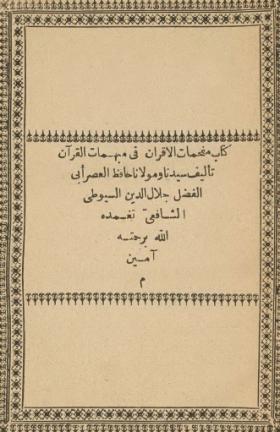 كتاب مفحمات الاقران فى مبهمات القرآن
تأليف سيدنا ومولانا حافظ العصر أبى
الفضل جلال الدين السيوطى
الشافعى تغمده
الله برحمته
آمين
م